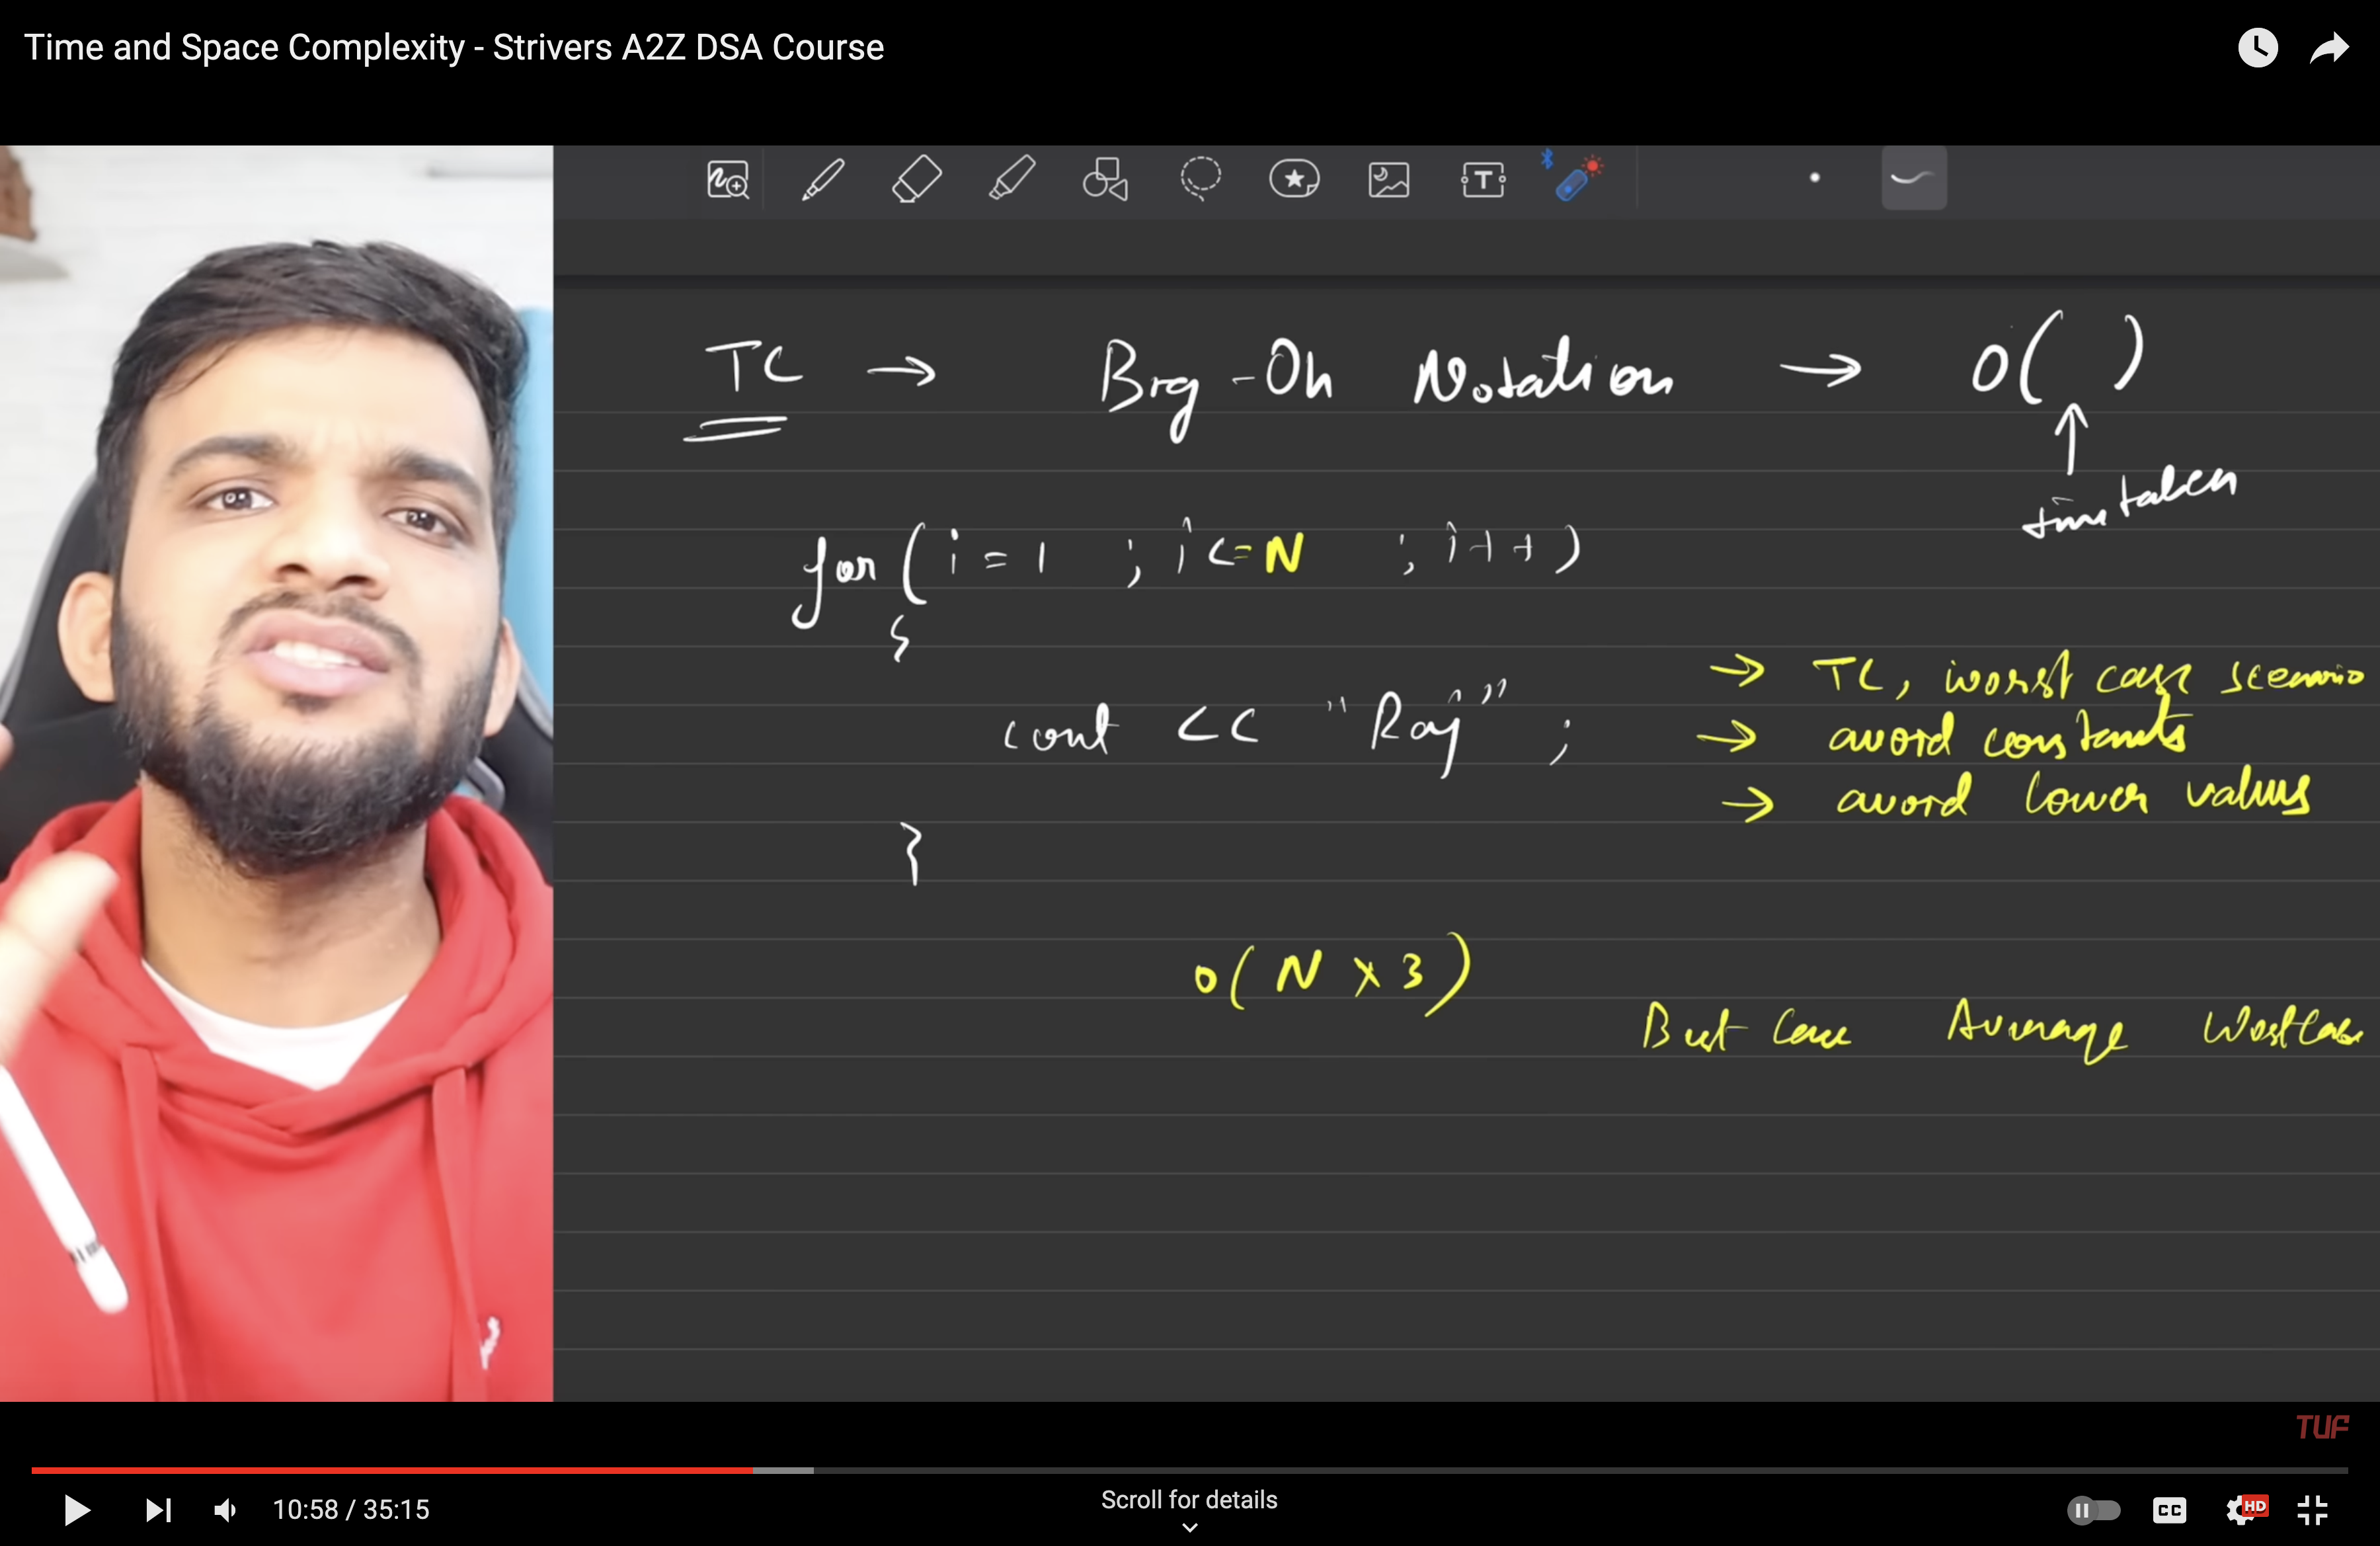 Time and Space Complexity - Strivers A2Z DSA Course
TC → Big-Oh Notation → O( )
↑
time taken
for ( i = 1 ; i <= N ; i++ )
{
cout << "Raj" ;
}
→ TC, worst case scenario
→ avoid constants
→ avoid lower values
O( N × 3 )
Best Case Average Worst Case
TUF
10:58 / 35:15
Scroll for details
CC
HD